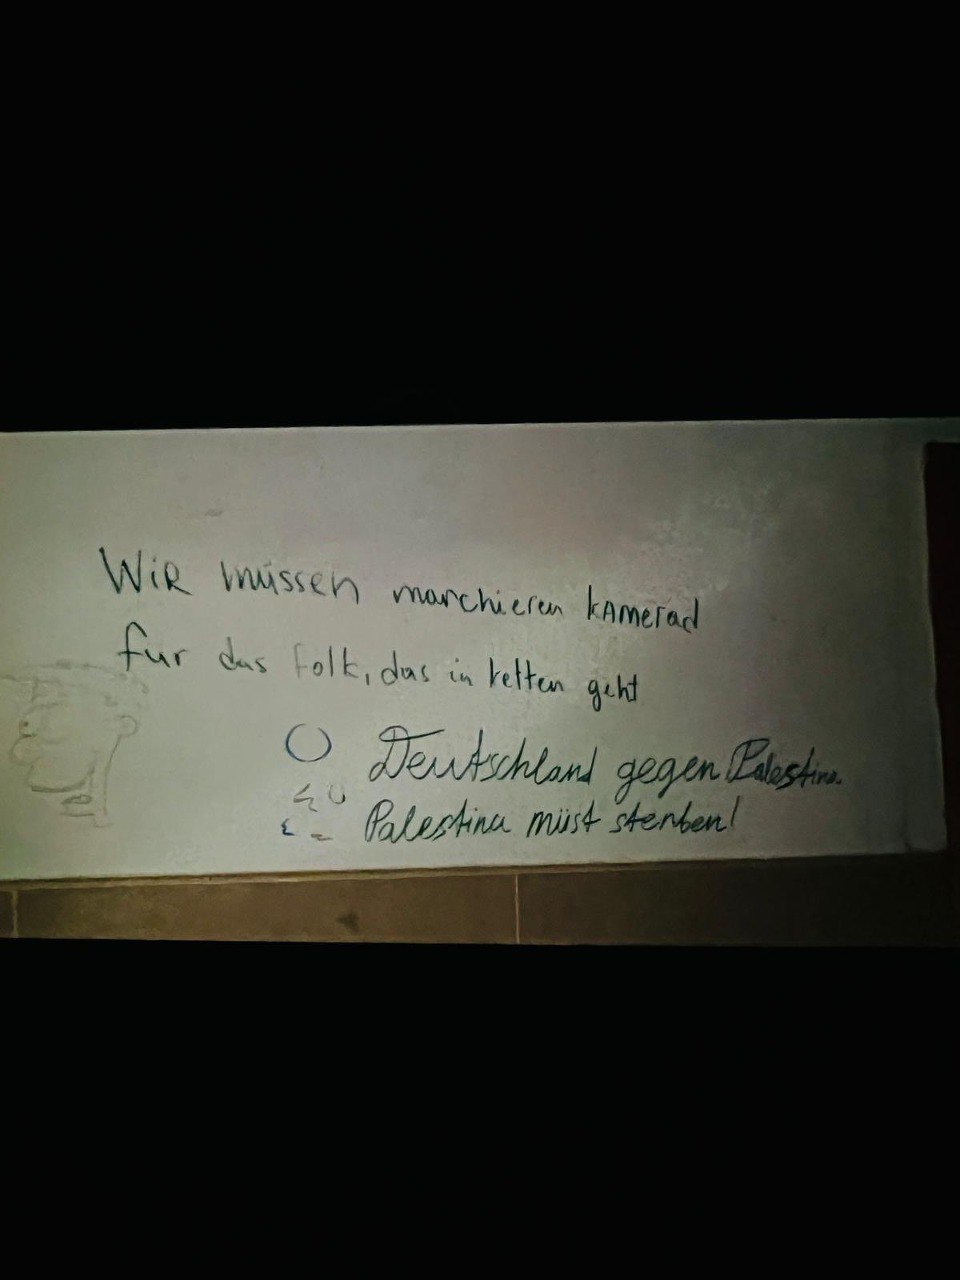 WiR müssen marchieren kamerad
fur das folk, das in ketten geht
Deutschland gegen Palestina.
Palestina müst sterben!